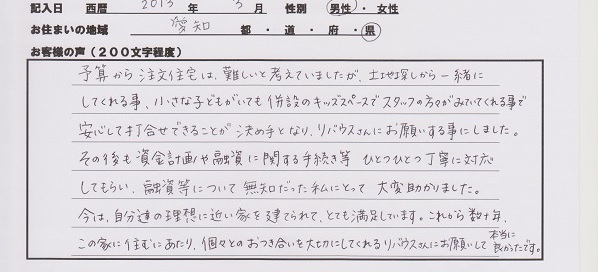 記入日 西暦 2013 年 3 月 性別 男性・女性
お住まいの地域 愛知 都・道・府・県
お客様の声(200文字程度)
予算から注文住宅は、難しいと考えていましたが、土地探しから一緒に
してくれる事、小さな子どもがいても併設のキッズスペースでスタッフの方々がみていてくれる事で
安心して打合せできることが決め手となり、リバウスさんにお願いする事にしました。
その後も資金計画や融資に関する手続き等 ひとつひとつ丁寧に対応
してもらい、融資等について無知だった私にとって 大変助かりました。
今は、自分達の理想に近い家を建てられて、とても満足しています。これから数十年、
この家に住むにあたり、個々とのおつき合いを大切にしてくれるリバウスさんにお願いして本当に良かったです。